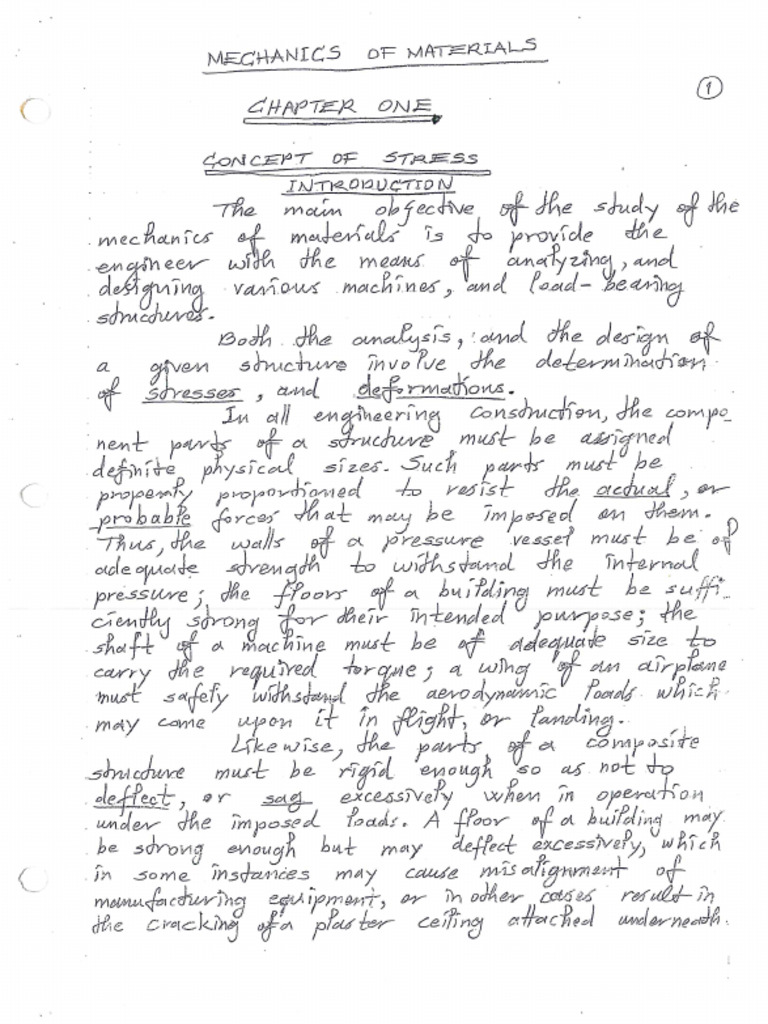 MECHANICS OF MATERIALS
1
CHAPTER ONE
CONCEPT OF STRESS
INTRODUCTION
The main objective of the study of the
mechanics of materials is to provide the
engineer with the means of analyzing, and
designing various machines, and load-bearing
structures.
Both the analysis, and the design of
a given structure involve the determination
of stresses, and deformations.
In all engineering construction, the compo-
nent parts of a structure must be assigned
definite physical sizes. Such parts must be
properly proportioned to resist the actual, or
probable forces that may be imposed on them.
Thus, the walls of a pressure vessel must be of
adequate strength to withstand the internal
pressure; the floors of a building must be suffi-
ciently strong for their intended purpose; the
shaft of a machine must be of adequate size to
carry the required torque; a wing of an airplane
must safely withstand the aerodynamic loads which
may come upon it in flight, or landing.
Likewise, the parts of a composite
structure must be rigid enough so as not to
deflect, or sag excessively when in operation
under the imposed loads. A floor of a building may
be strong enough but may deflect excessively, which
in some instances may cause misalignment of
manufacturing equipment, or in other cases result in
the cracking of a plaster ceiling attached underneath.